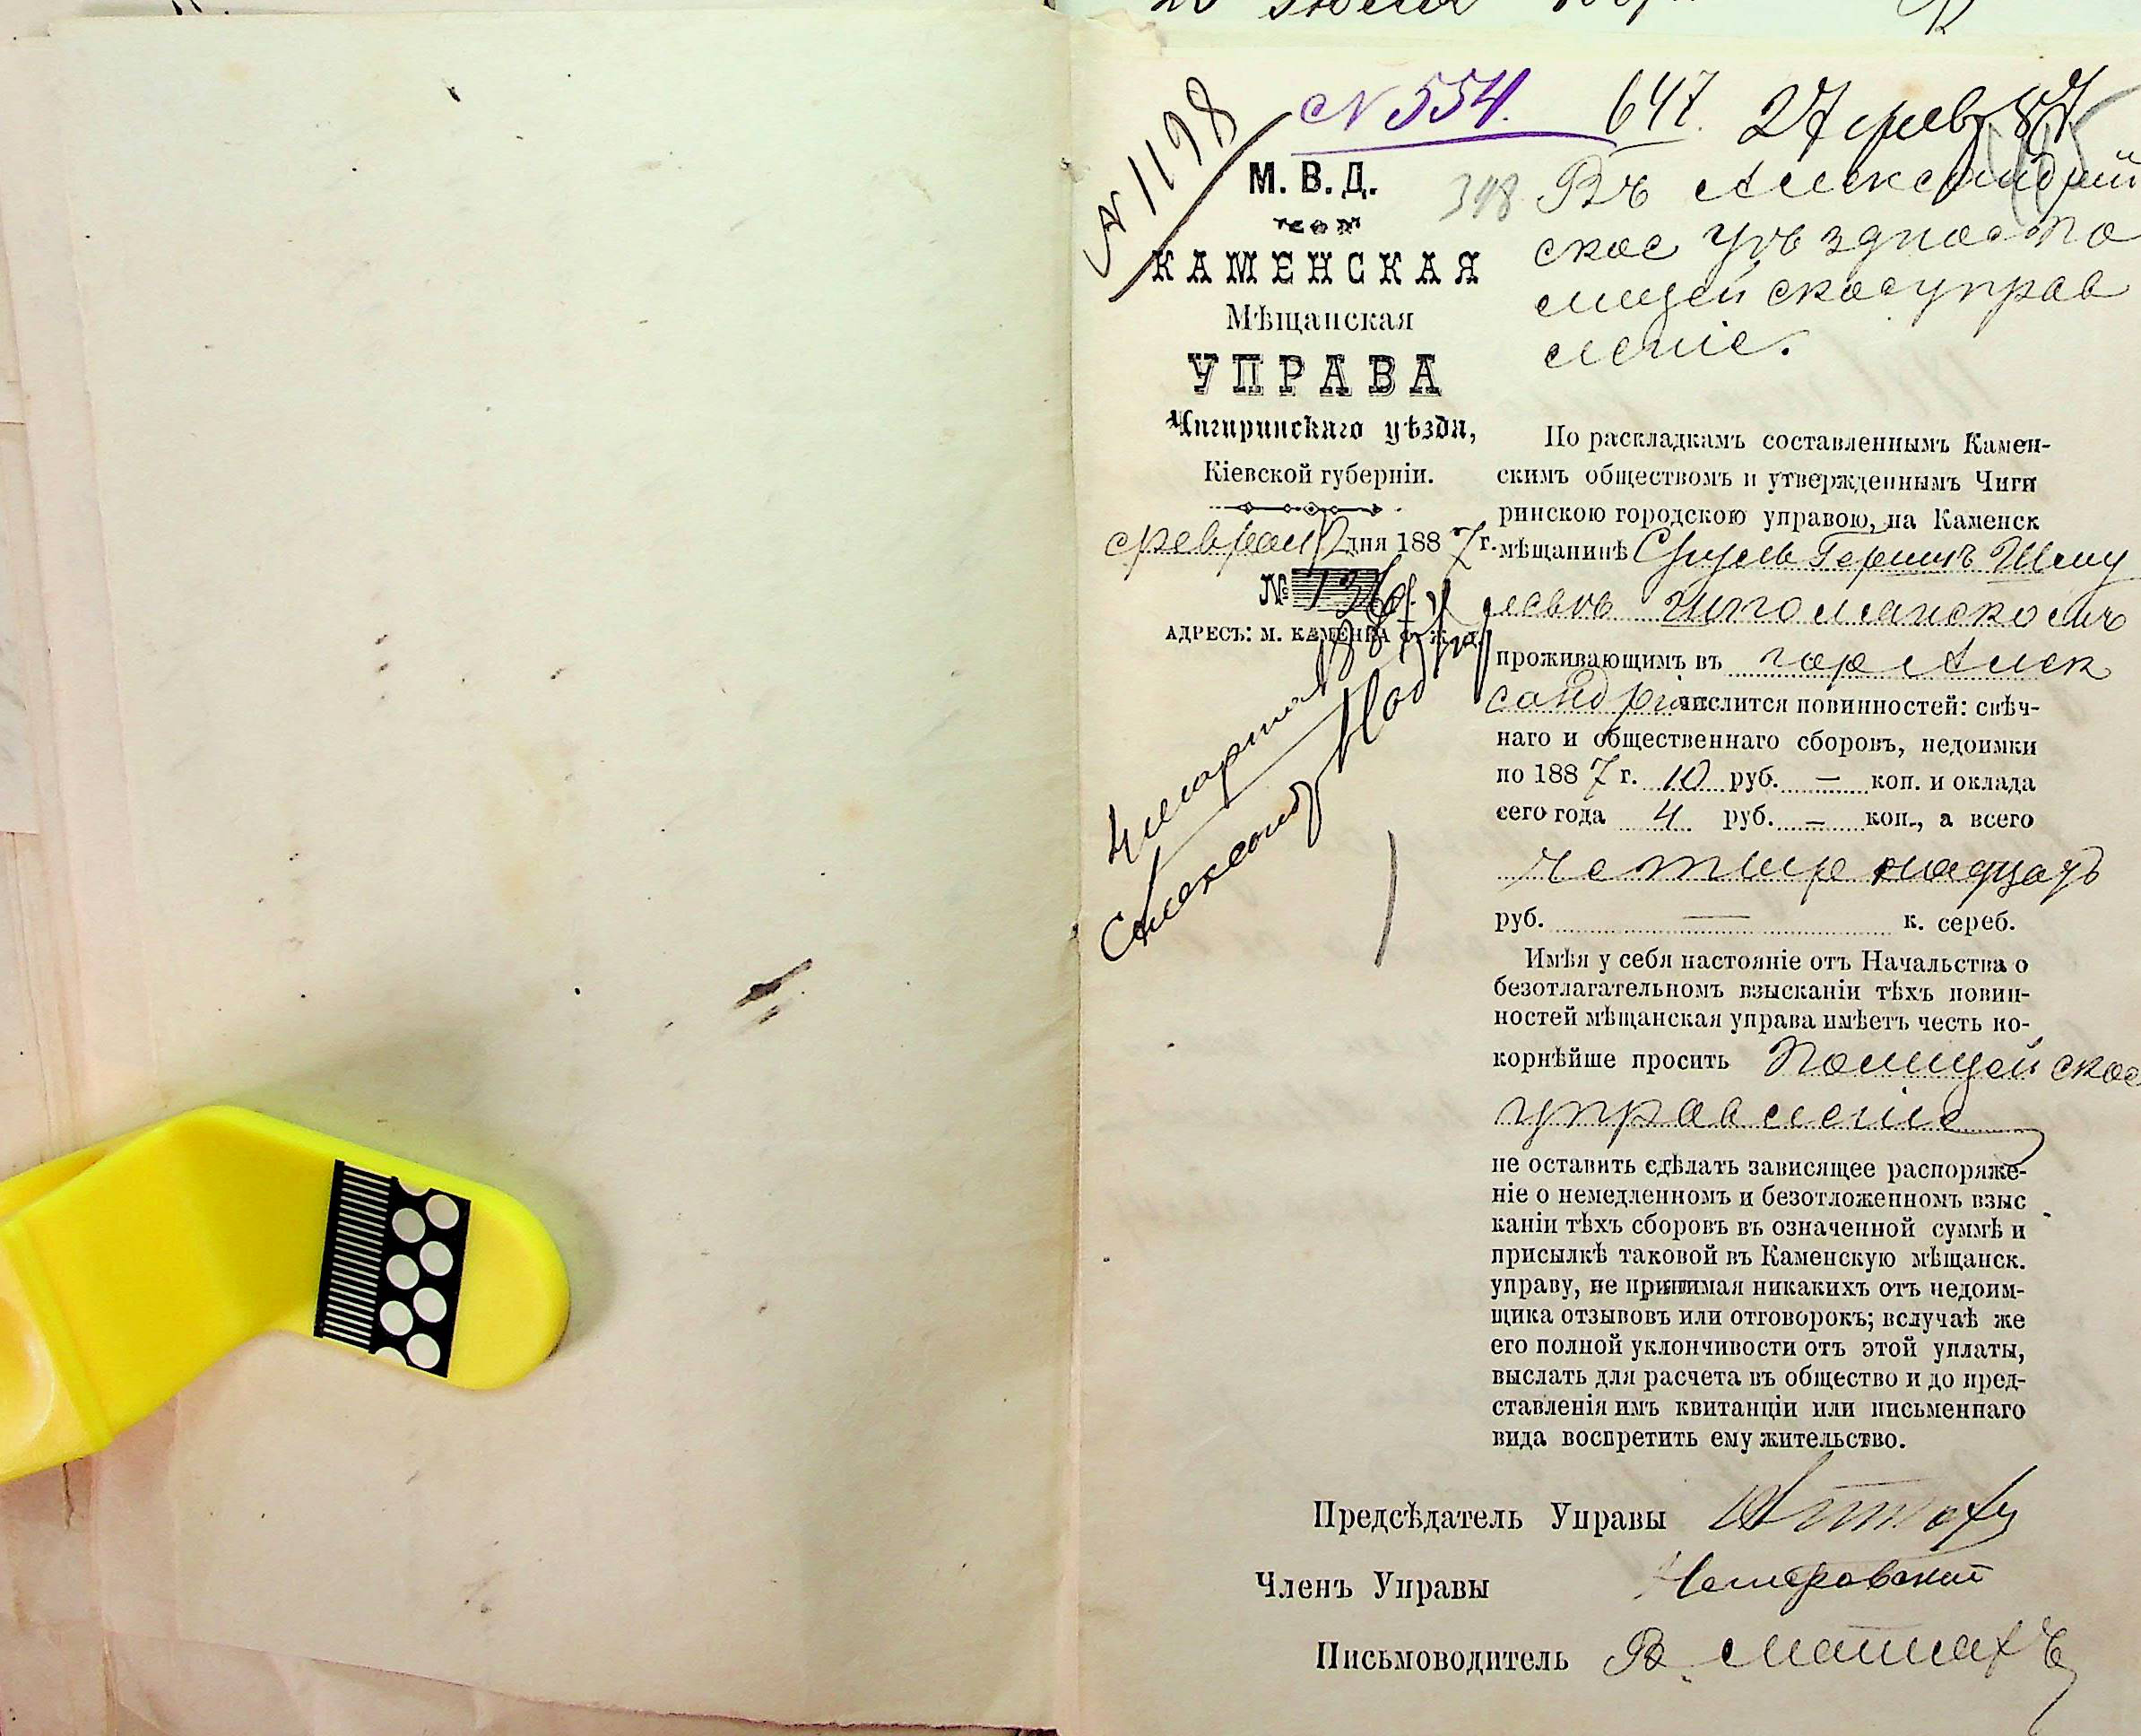 № 1198
№ 554.
647. 27 февр 87
М. В. Д.
КАМЕНСКАЯ
Мѣщанская
УПРАВА
Чигиринскаго уѣзда,
Кіевской губерніи.
феврал 12 дня 1887 г.
№ 136
АДРЕСЪ: М. КАМЕНКА Ф. Ж. д.
4 марта 1887 года
Александр
348
Въ Александрій
ское Уѣздное по
лицейское управ
леніе.
По раскладкамъ составленнымъ Камен-
скимъ обществомъ и утвержденнымъ Чиги
ринскою городскою управою, на Каменск
мѣщанинѣ Сруль Гершъ Шму
левѣ
проживающимъ въ гор Алек
сандріи числится повинностей: свѣч-
наго и общественнаго сборовъ, недоимки
по 1887 г. 10 руб. — коп. и оклада
сего года 4 руб. — коп., а всего
четырнадцать
руб. — к. сереб.
Имѣя у себя настояніе отъ Начальства о
безотлагательномъ взысканіи тѣхъ повин-
ностей мѣщанская управа имѣетъ честь по-
корнѣйше просить Полицейское
управленіе
не оставить сдѣлать зависящее распоряже-
ніе о немедленномъ и безотложенномъ взыс
каніи тѣхъ сборовъ въ означенной суммѣ и
присылкѣ таковой въ Каменскую мѣщанск.
управу, не принимая никакихъ отъ недоим-
щика отзывовъ или отговорокъ; вслучаѣ же
его полной уклончивости отъ этой уплаты,
выслать для расчета въ общество и до пред-
ставленія имъ квитанціи или письменнаго
вида воспретить ему жительство.
Предсѣдатель Управы
Членъ Управы Немировский
Письмоводитель В.